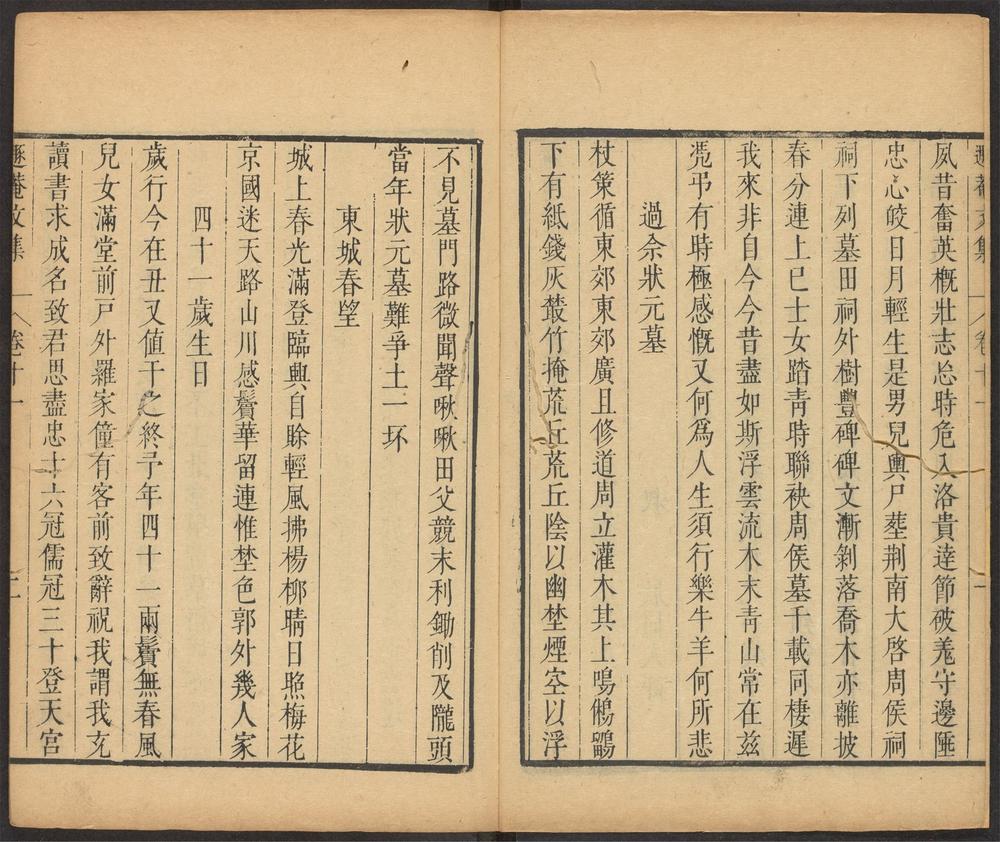 夙昔奮英概壯志忘時危入洛貴達節破羗守邊陲
忠心皎日月輕生是男兒輿尸塟荆南大啓周侯祠
祠下列墓田祠外樹豐碑碑文漸剝落喬木亦離披
春分連上巳士女踏靑時聯袂周侯墓千載同棲遲
我來非自今今昔盡如斯浮雲流木末靑山常在兹
凴弔有時極感慨又何爲人生須行樂牛羊何所悲
過佘狀元墓
杖策循東郊東郊廣且修道周立灌木其上鳴鵂鶹
下有紙錢灰藂竹掩荒丘荒丘陰以幽埜煙空以浮
不見墓門路微聞聲啾啾田父競末利鋤削及隴頭
當年狀元墓難爭土一坏
東城春望
城上春光滿登臨興自賖輕風拂楊栁晴日照梅花
京國迷天路山川感鬢華留連惟埜色郭外幾人家
四十一歲生日
歲行今在丑又值干之終予年四十一兩鬢無春風
兒女滿堂前戸外羅家僮有客前致辭祝我謂我充
讀書求成名致君思盡忠十六冠儒冠三十登天宮
遯菴文集
卷十一
二